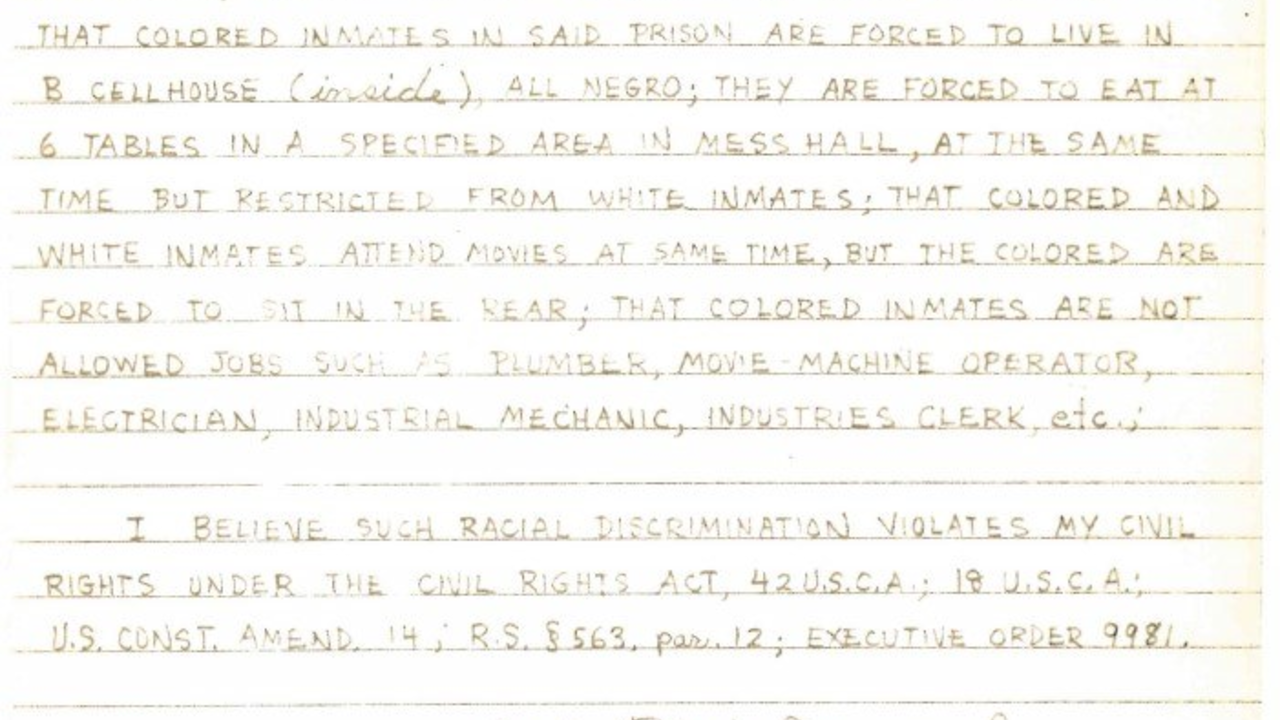 THAT COLORED INMATES IN SAID PRISON ARE FORCED TO LIVE IN
B CELLHOUSE (inside), ALL NEGRO; THEY ARE FORCED TO EAT AT
6 TABLES IN A SPECIFIED AREA IN MESS HALL, AT THE SAME
TIME BUT RESTRICTED FROM WHITE INMATES; THAT COLORED AND
WHITE INMATES ATTEND MOVIES AT SAME TIME, BUT THE COLORED ARE
FORCED TO SIT IN THE REAR; THAT COLORED INMATES ARE NOT
ALLOWED JOBS SUCH AS PLUMBER, MOVIE-MACHINE OPERATOR,
ELECTRICIAN, INDUSTRIAL MECHANIC, INDUSTRIES CLERK, etc.;
I BELIEVE SUCH RACIAL DISCRIMINATION VIOLATES MY CIVIL
RIGHTS UNDER THE CIVIL RIGHTS ACT, 42 U.S.C.A.; 18 U.S.C.A.;
U.S. CONST. AMEND. 14; R.S. § 563, par. 12; EXECUTIVE ORDER 9981.